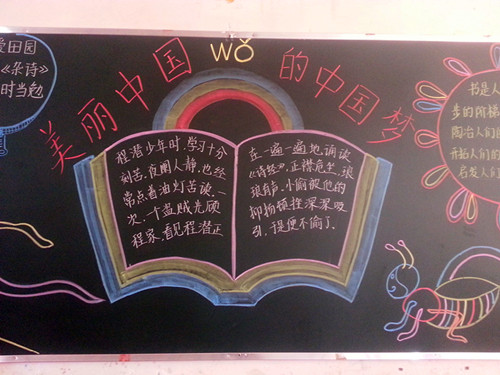 美丽中国 wǒ 的中国梦
爱田园
《杂诗》
时当勉
程潜少年时,学习十分
刻苦,夜阑人静,也经
常点着油灯苦读,一
次,一个盗贼光顾
程家,看见程潜正
在一遍一遍地诵读
《诗经》,正襟危坐,琅
琅有声,小偷被他的
抑扬顿挫深深吸
引,便不偷了。
书是人
步的阶梯
陶冶人们
开拓人们的
启发人们